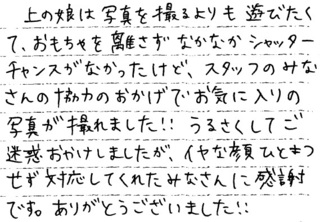 上の娘は写真を撮るよりも遊びたく
て、おもちゃを離さずなかなかシャッター
チャンスがなかったけど、スタッフのみな
さんの協力のおかげでお気に入りの
写真が撮れました!! うるさくしてご
迷惑おかけしましたが、イヤな顔ひとつ
せず対応してくれたみなさんに感謝
です。ありがとうございました!!